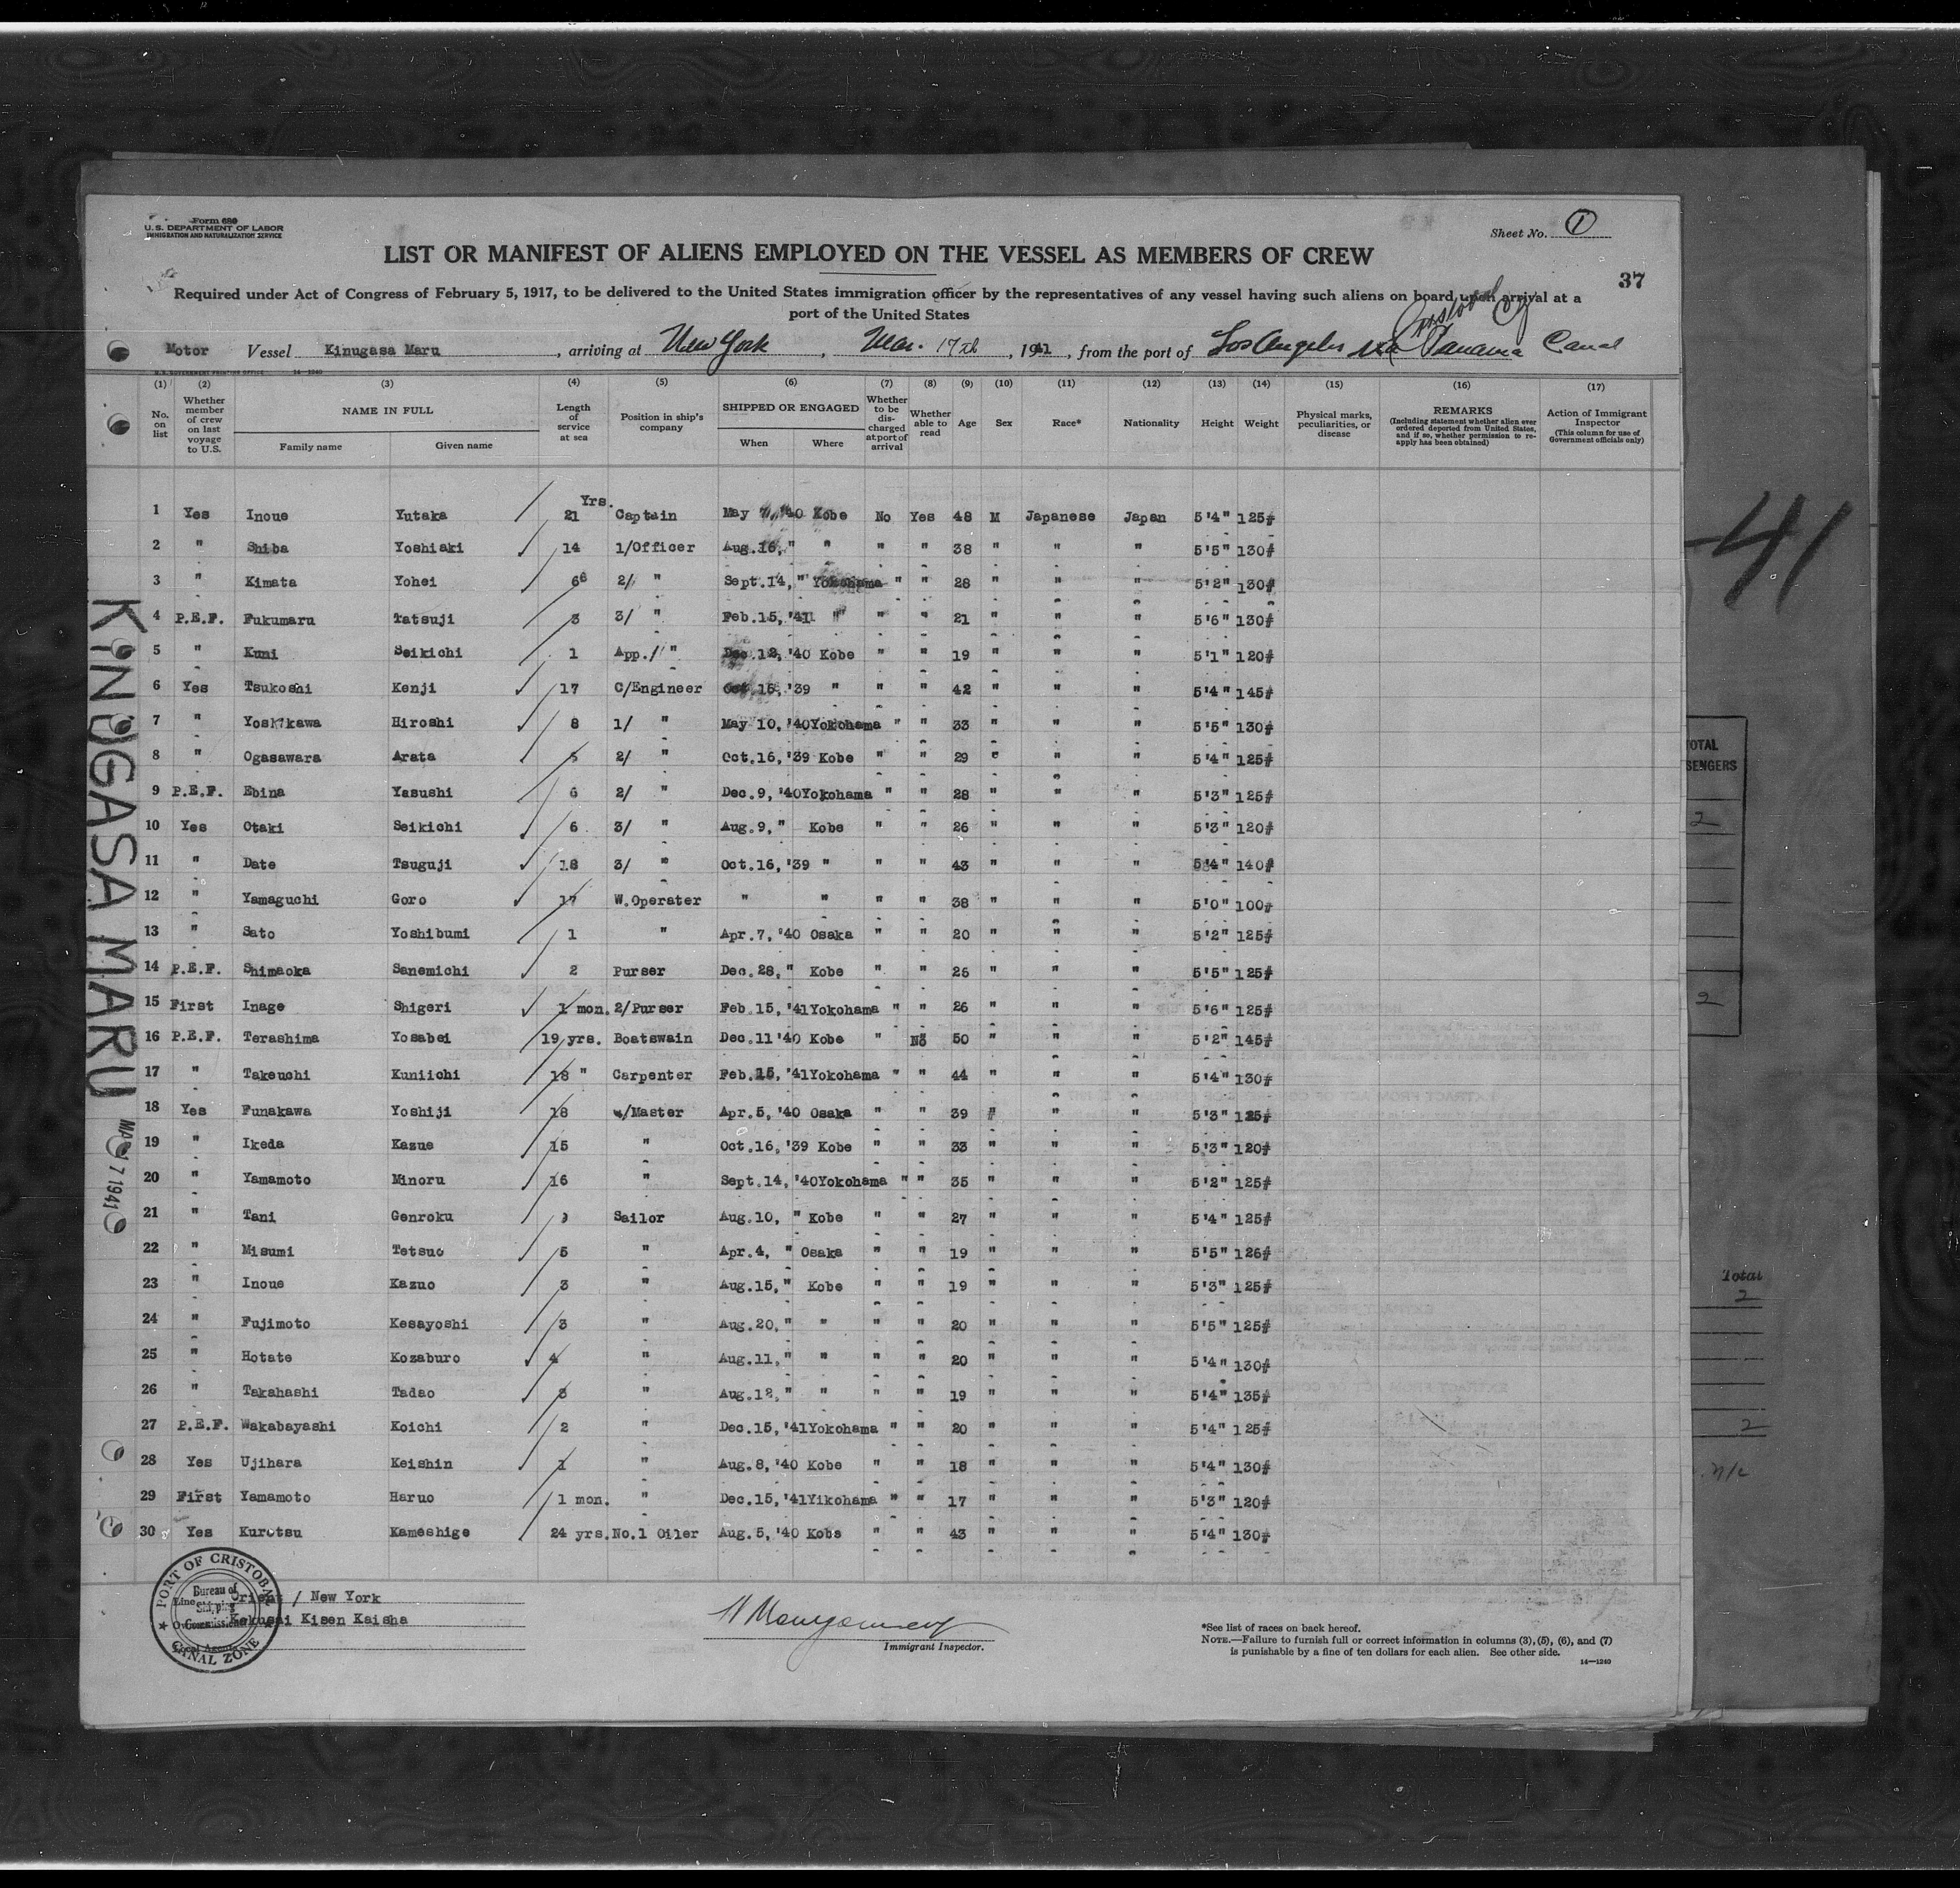 Form 680
U.S. DEPARTMENT OF LABOR
IMMIGRATION AND NATURALIZATION SERVICE
Sheet No. 1
LIST OR MANIFEST OF ALIENS EMPLOYED ON THE VESSEL AS MEMBERS OF CREW
37
Required under Act of Congress of February 5, 1917, to be delivered to the United States immigration officer by the representatives of any vessel having such aliens on board upon arrival at a
port of the United States
Cristobal CZ
Motor Vessel Kinugasa Maru, arriving at New York, Mar. 17th, 1941, from the port of Los Angeles via Panama Canal
U.S. GOVERNMENT PRINTING OFFICE 14—1240
(1) (2) (3) (4) (5) (6) (7) (8) (9) (10) (11) (12) (13) (14) (15) (16) (17)
No. on list
Whether member of crew on last voyage to U.S.
NAME IN FULL
Family name Given name
Length of service at sea
Position in ship's company
SHIPPED OR ENGAGED
When Where
Whether to be discharged at port of arrival
Whether able to read
Age
Sex
Race*
Nationality
Height
Weight
Physical marks, peculiarities, or disease
REMARKS
(Including statement whether alien ever ordered deported from United States, and if so, whether permission to re-apply has been obtained)
Action of Immigrant Inspector
(This column for use of Government officials only)
Yrs.
1 Yes Inoue Yutaka 21 Captain May 7, '40 Kobe No Yes 48 M Japanese Japan 5'4" 125#
2 " Shiba Yoshiaki 14 1/Officer Aug.16, " " " " 38 " " " 5'5" 130#
3 " Kimata Yohei 6 2/ " Sept.14, " Yokohama " " 28 " " " 5'2" 130#
4 P.E.F. Fukumaru Tatsuji 3 3/ " Feb.15, '41 " " " 21 " " " 5'6" 130#
5 " Kuni Seikichi 1 App./ " Dec.12, '40 Kobe " " 19 " " " 5'1" 120#
6 Yes Tsukoshi Kenji 17 C/Engineer Oct.16, '39 " " " 42 " " " 5'4" 145#
7 " Yoshikawa Hiroshi 8 1/ " May 10, '40 Yokohama " " 33 " " " 5'5" 130#
8 " Ogasawara Arata 5 2/ " Oct.16, '39 Kobe " " 29 " " " 5'4" 125#
9 P.E.F. Ebina Yasushi 6 2/ " Dec.9, '40 Yokohama " " 28 " " " 5'3" 125#
10 Yes Otaki Seikichi 6 3/ " Aug.9, " Kobe " " 26 " " " 5'3" 120#
11 " Date Tsuguji 18 3/ " Oct.16, '39 " " " 43 " " " 5'4" 140#
12 " Yamaguchi Goro 17 W.Operater " " " " 38 " " " 5'0" 100#
13 " Sato Yoshibumi 1 " Apr.7, '40 Osaka " " 20 " " " 5'2" 125#
14 P.E.F. Shimaoka Sanemichi 2 Purser Dec.28, " Kobe " " 25 " " " 5'5" 125#
15 First Inage Shigeri 1 mon. 2/Purser Feb.15, '41 Yokohama " " 26 " " " 5'6" 125#
16 P.E.F. Terashima Yosabei 19 yrs. Boatswain Dec.11 '40 Kobe " 50 " " " 5'2" 145#
17 " Takeuchi Kuniichi 18 " Carpenter Feb.15, '41 Yokohama " " 44 " " " 5'4" 130#
18 Yes Funakawa Yoshiji 18 /Master Apr.5, '40 Osaka " " 39 " " " 5'3" 125#
19 " Ikeda Kazue 15 " Oct.16, '39 Kobe " " 33 " " " 5'3" 120#
20 " Yamamoto Minoru 16 " Sept.14, '40 Yokohama " " 35 " " " 5'2" 125#
21 " Tani Genroku Sailor Aug.10, " Kobe " " 27 " " " 5'4" 125#
22 " Misumi Tetsuo 5 " Apr.4, " Osaka " " 19 " " " 5'5" 126#
23 " Inoue Kazuo 3 " Aug.15, " Kobe " " 19 " " " 5'3" 125#
24 " Fujimoto Kesayoshi 3 " Aug.20, " " " " 20 " " " 5'5" 125#
25 " Hotate Kozaburo 4 " Aug.11, " " " " 20 " " " 5'4" 130#
26 " Takahashi Tadao 3 " Aug.12, " " " " 19 " " " 5'4" 135#
27 P.E.F. Wakabayashi Koichi 2 " Dec.15, '41 Yokohama " " 20 " " " 5'4" 125#
28 Yes Ujihara Keishin 1 " Aug.8, '40 Kobe " " 18 " " " 5'4" 130#
29 First Yamamoto Haruo 1 mon. " Dec.15, '41 Yikohama " " 17 " " " 5'3" 120#
30 Yes Kurotsu Kameshige 24 yrs. No.1 Oiler Aug.5, '40 Kobe " " 43 " " " 5'4" 130#
KINUGASA MARU
MAR 17 1941
41
TOTAL
2
2
Total
2
2
PORT OF CRISTOBAL
Bureau of
Shipping
Commissioner
CANAL ZONE
Line Orient / New York
Owners Kokusai Kisen Kaisha
Local Agents
H Montgomery
Immigrant Inspector.
*See list of races on back hereof.
NOTE.—Failure to furnish full or correct information in columns (3), (5), (6), and (7)
is punishable by a fine of ten dollars for each alien. See other side.
14—1240